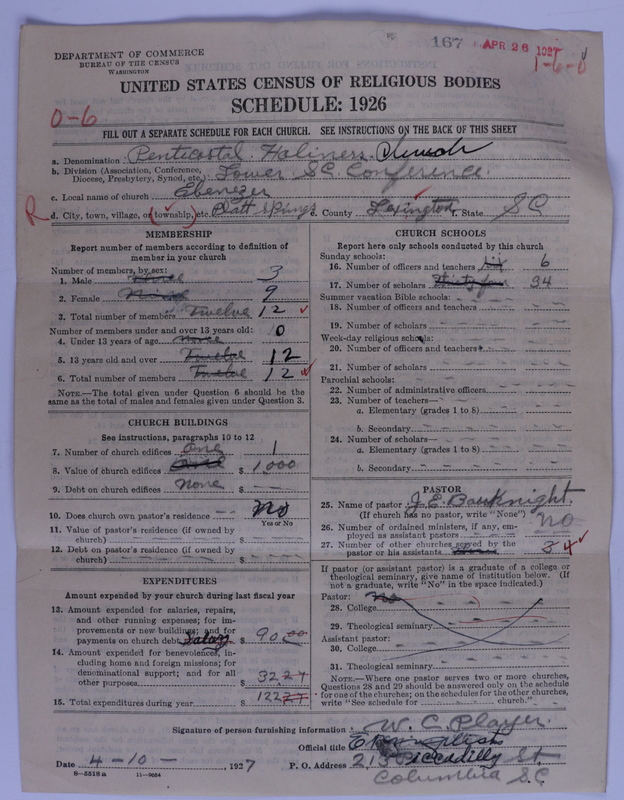 167 APR 26 1927
1-6-0
DEPARTMENT OF COMMERCE
BUREAU OF THE CENSUS
WASHINGTON
UNITED STATES CENSUS OF RELIGIOUS BODIES
SCHEDULE: 1926
0-6
FILL OUT A SEPARATE SCHEDULE FOR EACH CHURCH. SEE INSTRUCTIONS ON THE BACK OF THIS SHEET
a. Denomination Penticostal Holiness Church
b. Division (Association, Conference,
Diocese, Presbytery, Synod, etc.) Lower SC. Conference.
c. Local name of church Ebenezer
R d. City, town, village, or (township,) etc. Platt Springs e. County Lexington f. State SC
MEMBERSHIP
Report number of members according to definition of
member in your church
Number of members, by sex:
1. Male Three 3
2. Female Nine 9
3. Total number of members Twelve 12
Number of members under and over 13 years old:
4. Under 13 years of age none 0
5. 13 years old and over Twelve 12
6. Total number of members Twelve 12
NOTE.—The total given under Question 6 should be
same as the total of males and females given under Question 3.
CHURCH BUILDINGS
See instructions, paragraphs 10 to 12
7. Number of church edifices one 1
8. Value of church edifices $ 1,000
9. Debt on church edifices none $
10. Does church own pastor's residence No
Yes or No
11. Value of pastor's residence (if owned by
church) $
12. Debt on pastor's residence (if owned by
church) $
EXPENDITURES
Amount expended by your church during last fiscal year
13. Amount expended for salaries, repairs,
and other running expenses; for im-
provements or new buildings; and for
payments on church debt Salary $ 90.00
14. Amount expended for benevolences, in-
cluding home and foreign missions; for
denominational support; and for all
other purposes $ 32.27
15. Total expenditures during year $ 122.27
CHURCH SCHOOLS
Report here only schools conducted by this church
Sunday schools:
16. Number of officers and teachers six 6
17. Number of scholars Thirty four 34
Summer vacation Bible schools:
18. Number of officers and teachers
19. Number of scholars
Week-day religious schools:
20. Number of officers and teachers
21. Number of scholars
Parochial schools:
22. Number of administrative officers
23. Number of teachers—
a. Elementary (grades 1 to 8)
b. Secondary
24. Number of scholars—
a. Elementary (grades 1 to 8)
b. Secondary
PASTOR
25. Name of pastor J. E. Bouknight
(If church has no pastor, write "None")
26. Number of ordained ministers, if any, em-
ployed as assistant pastors no
27. Number of other churches served by the
pastor or his assistants 4
If pastor (or assistant pastor) is a graduate of a college or
theological seminary, give name of institution below. (If
not a graduate, write "No" in the space indicated.)
Pastor: No
28. College
29. Theological seminary
Assistant pastor:
30. College
31. Theological seminary
NOTE.—Where one pastor serves two or more churches,
Questions 28 and 29 should be answered only on the schedule
for one of the churches; on the schedules for the other churches,
write "See schedule for church."
Signature of person furnishing information W. C. Player.
Official title
Date 4-10-, 1927 P. O. Address Piccadilly St.
8-5518 a 11-9084 Columbia S.C